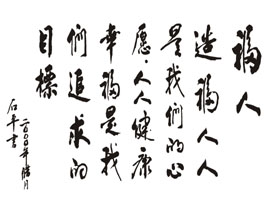 福人
造福人人
是我們的心
愿，人人健康
幸福是我
們追求的
目標
二〇〇〇年月
石平書